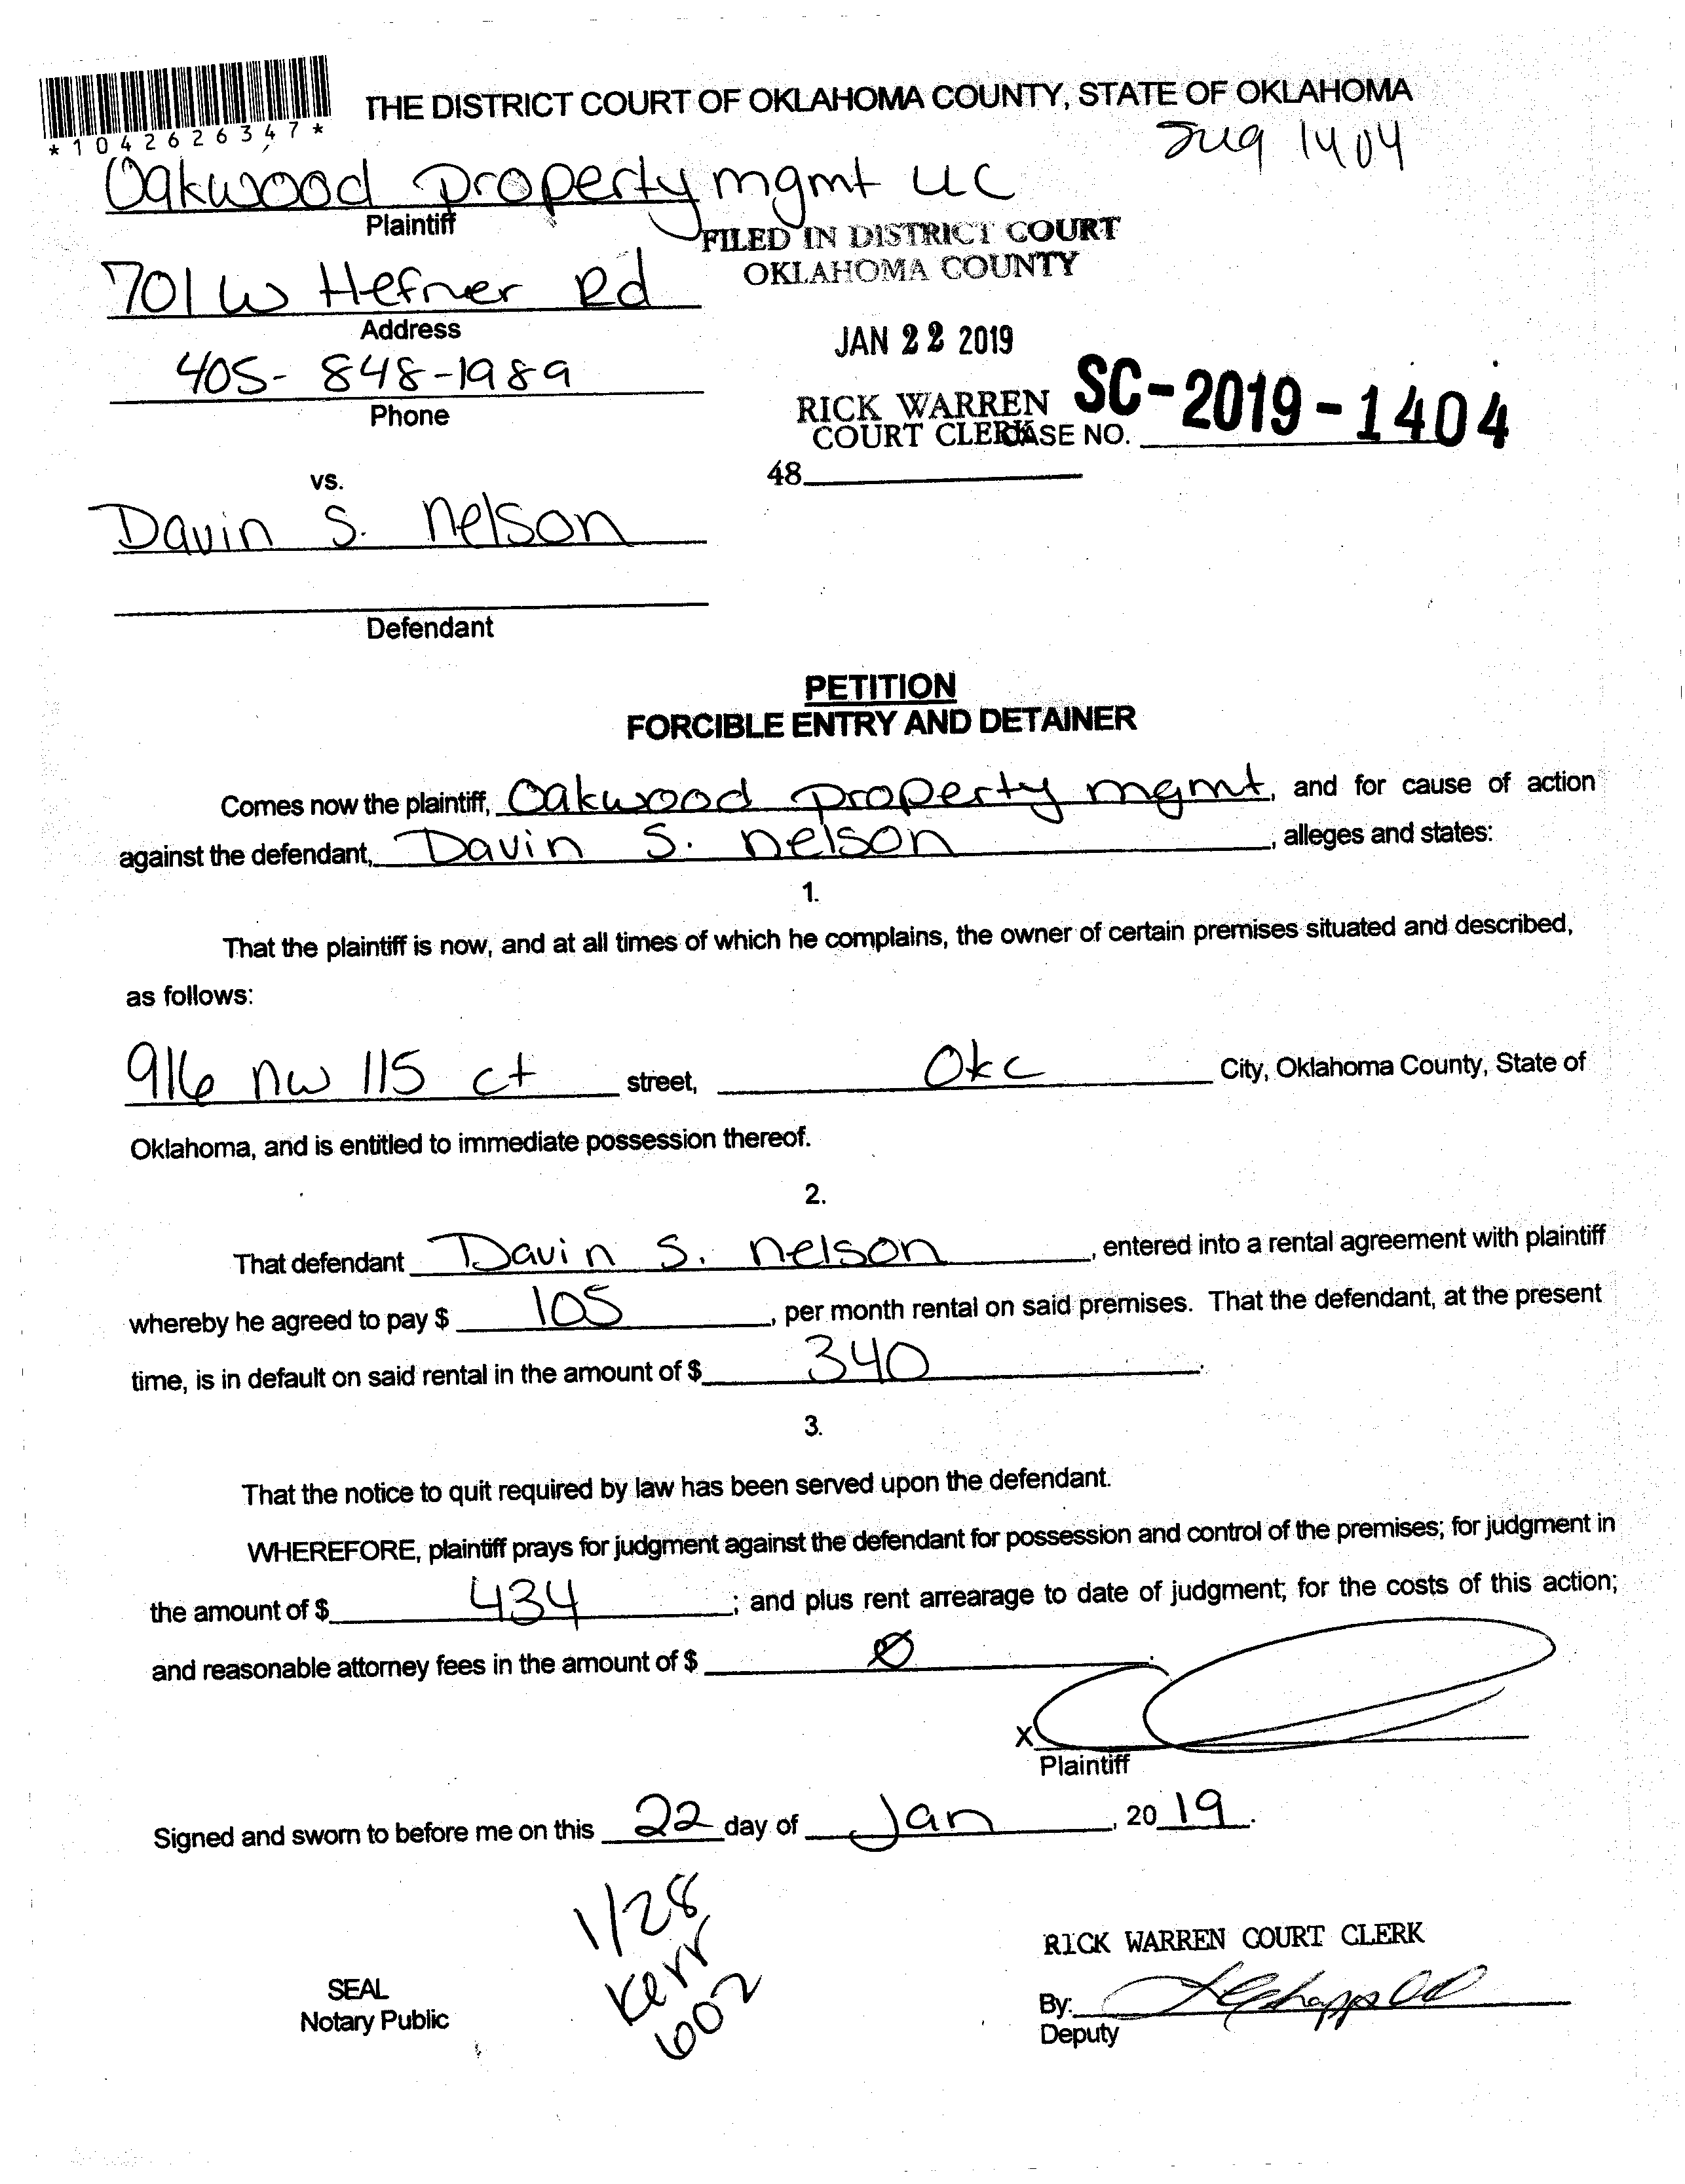 THE DISTRICT COURT OF OKLAHOMA COUNTY, STATE OF OKLAHOMA
*1042626347*
1404
Oakwood property mgmt LLC
Plaintiff
FILED IN DISTRICT COURT
OKLAHOMA COUNTY
701 W Hefner Rd
Address
JAN 22 2019
405-848-1989
Phone
RICK WARREN
COURT CLERK
CASE NO. SC-2019-1404
48
vs.
Davin S. nelson
Defendant
PETITION
FORCIBLE ENTRY AND DETAINER
Comes now the plaintiff, Oakwood property mgmt, and for cause of action
against the defendant, Davin S. nelson, alleges and states:
1.
That the plaintiff is now, and at all times of which he complains, the owner of certain premises situated and described,
as follows:
916 nw 115 ct street, Okc City, Oklahoma County, State of
Oklahoma, and is entitled to immediate possession thereof.
2.
That defendant Davin S. nelson, entered into a rental agreement with plaintiff
whereby he agreed to pay $ 105, per month rental on said premises. That the defendant, at the present
time, is in default on said rental in the amount of $ 340.
3.
That the notice to quit required by law has been served upon the defendant.
WHEREFORE, plaintiff prays for judgment against the defendant for possession and control of the premises; for judgment in
the amount of $ 434; and plus rent arrearage to date of judgment; for the costs of this action;
and reasonable attorney fees in the amount of $ Ø.
X
Plaintiff
Signed and sworn to before me on this 22 day of Jan, 2019.
1/28
Kerr
602
RICK WARREN COURT CLERK
SEAL
Notary Public
By:
Deputy